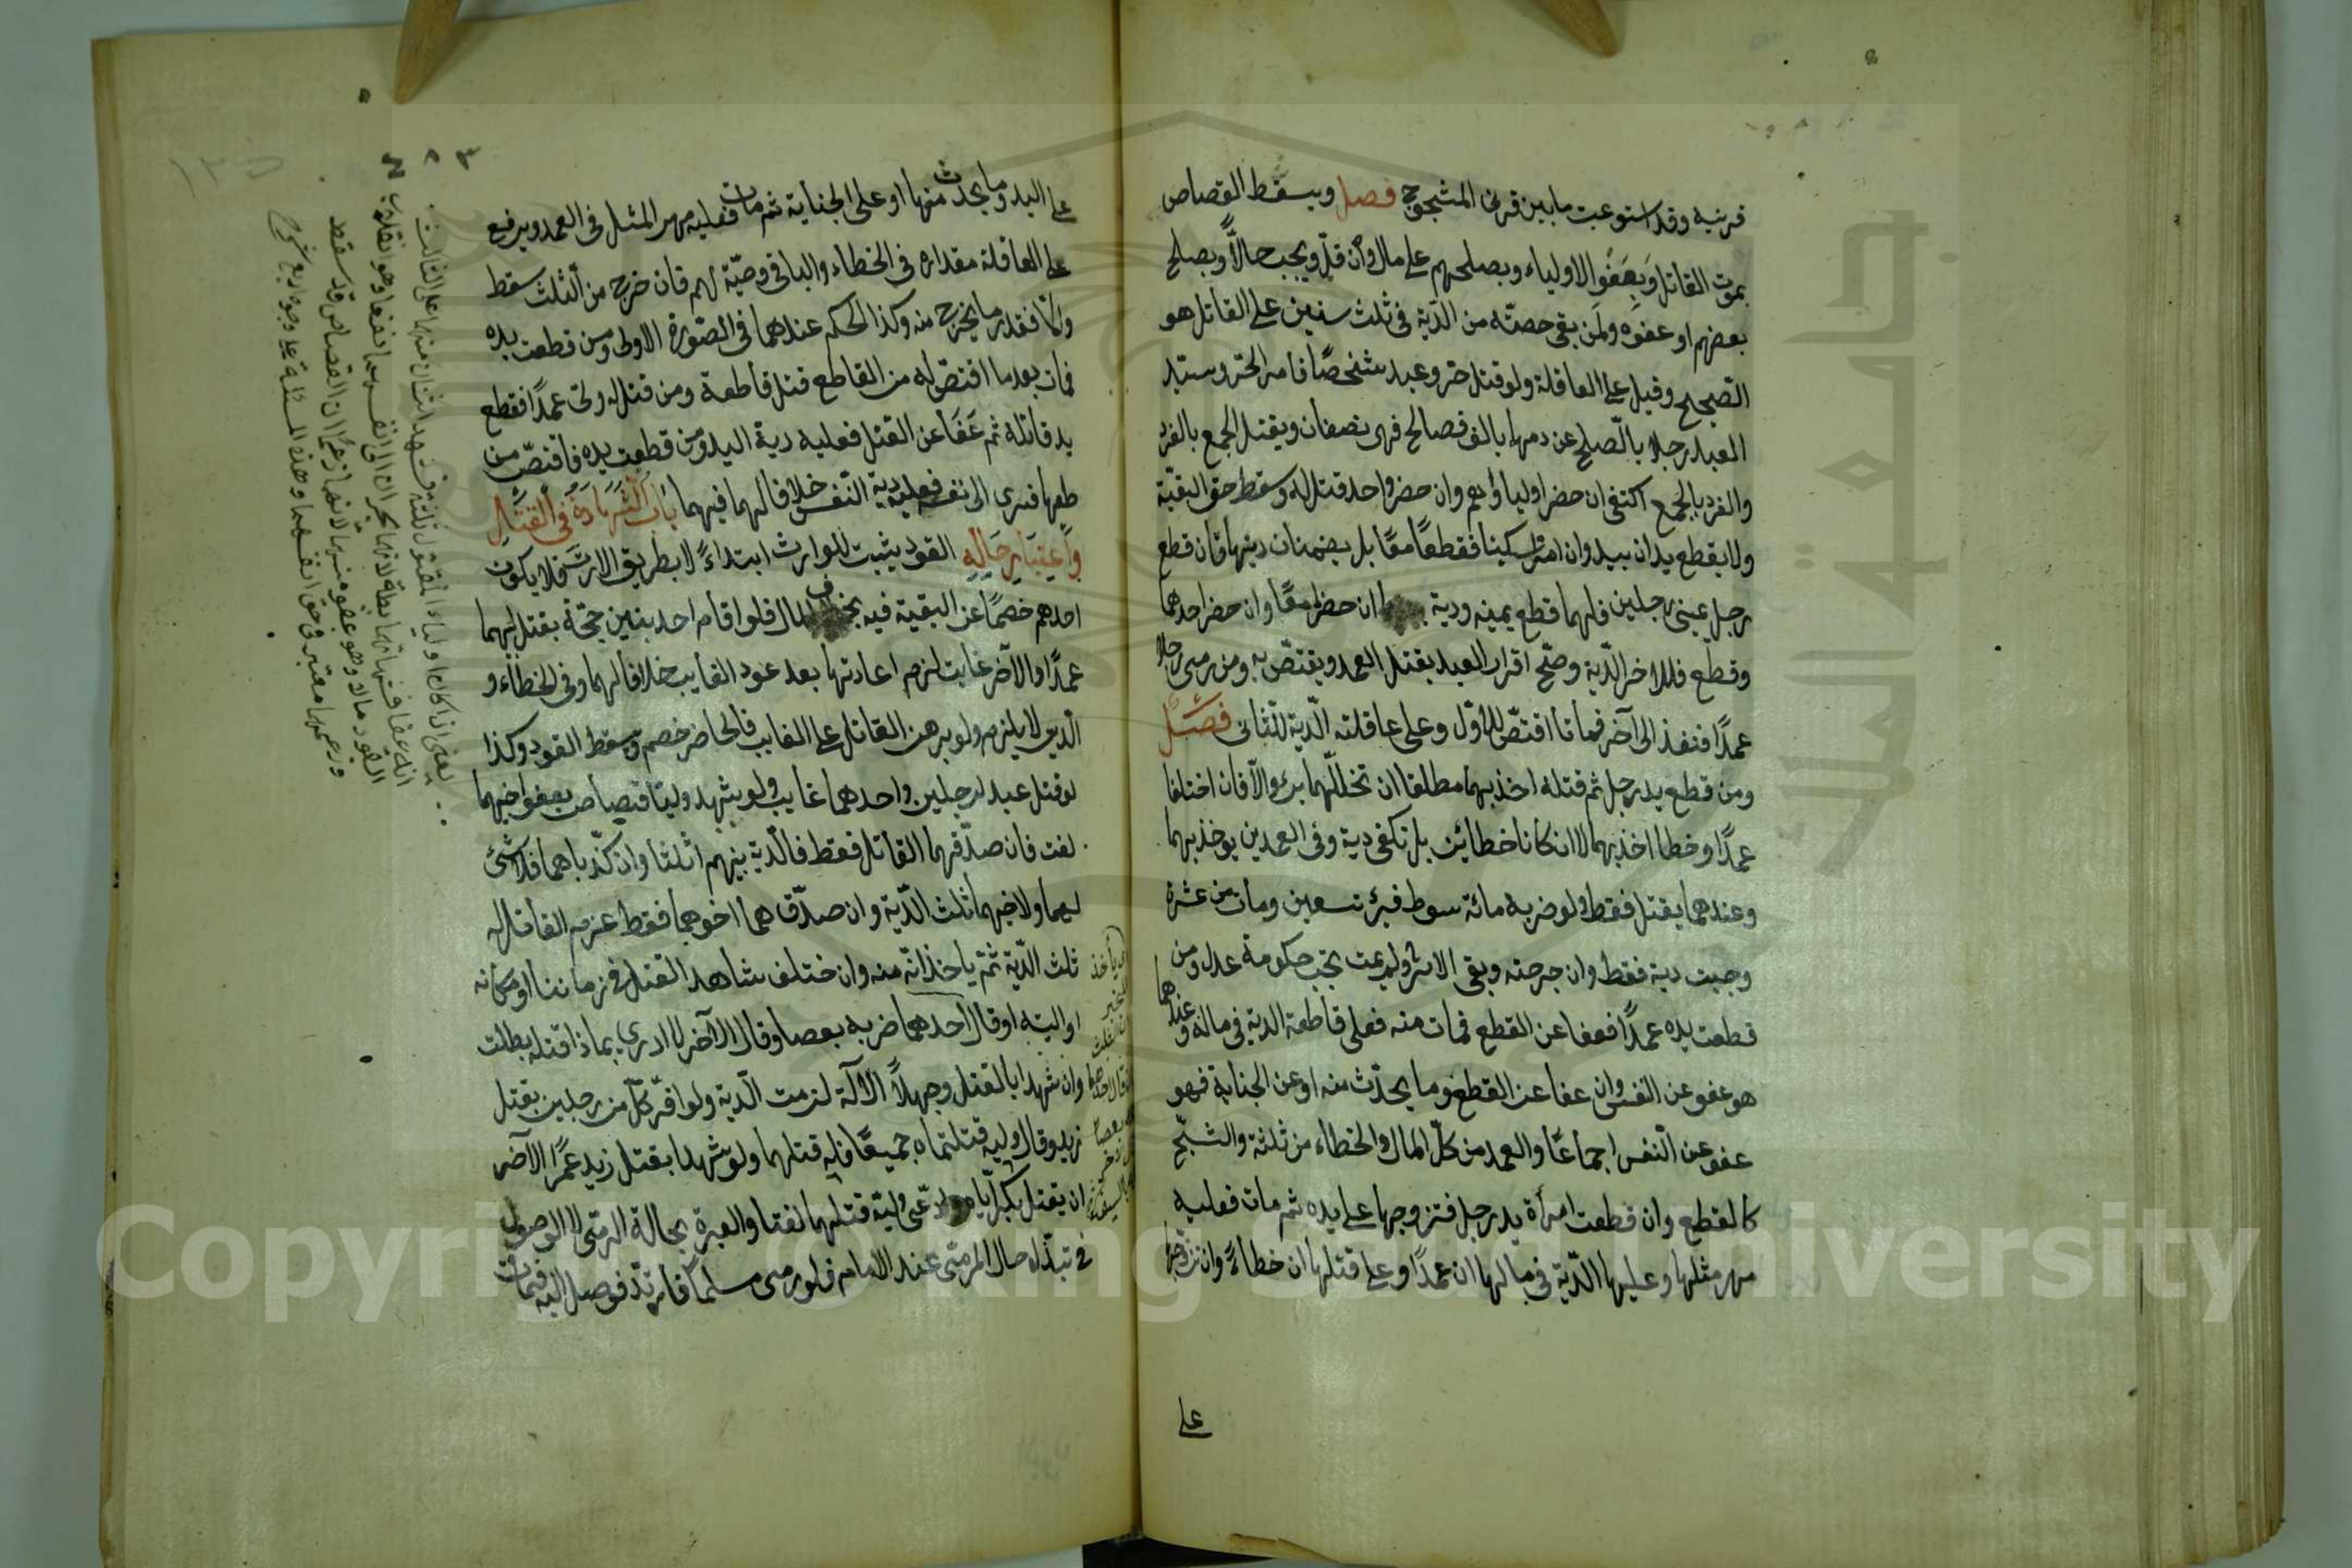 قرنيه وقد استوعبت ما بين قرنى المشجوج فصل ويسقط القصاص
بموت القاتل وبعفو الاولياء وبصلحهم على مال وان قلّ ويجب حالاً وبصلح
بعضهم او عفوه ولمن بقى حصته من الدية فى ثلث سنين على القاتل هو
الصحيح وقيل على العاقلة ولو قتل حر وعبد شخصًا فامر الحر وسيد
العبد رجلا بالصلح عن دمهما بالف فصالح فهى نصفان ويقتل الجمع بالفرد
والفرد بالجمع اكتفى ان حضر اولياؤهم وان حضر واحد قتل له وسقط حق البقية
ولا يقطع يدان بيد وان امرا سكينا فقطعا معًا بل يضمنان ديتها فان قطع
رجل يمينى رجلين فلهما قطع يمينه ودية ان حضرا معًا وان حضر احدهما
وقطع فللاخر الدية وصحّ اقرار العبد بقتل العمد ويقتصّ به ومن رمى رجلا
عمدًا فنفذ الى آخر فماتا اقتصّ للاوّل وعلى عاقلته الدية للثانى فصل
ومن قطع يد رجل ثم قتله اخذ بهما مطلقا ان تخللهما برء والّا فان اختلفا
عمدًا وخطا اخذ بهما لا ان كانا خطائين بل تكفى دية وفى العمدين يوخذ بهما
وعندهما يقتل فقط ولو ضربه مائة سوط فبرئ من تسعين ومات من عشرة
وجبت دية فقط وان جرحته وبقى الاثر ولم يمت تجب حكومة عدل ومن
قطعت يده عمدًا فعفا عن القطع فمات منه فعلى قاطعه الدية فى ماله وعندهما
هو عفو عن النفس وان عفا عن القطع وما يحدث منه او عن الجناية فهو
عفو عن النفس اجماعًا والعمد من كلّ المال والخطاء من ثلثه والشجّ
كالقطع وان قطعت امرأة يد رجل فتزوجها على يده ثم مات فعليه
مهر مثلها وعليها الدية فى مالها ان عمدًا وعلى عاقلتها ان خطاءً وان تزوجها
على
على اليد وما يحدث منها او على الجناية ثم مات فعليه مهر المثل فى العمد ويرفع
على العاقلة مقداره فى الخطاء والباقى وصيّة لهم فان خرج من الثلث سقط
والا فقدر ما يخرج منه وكذا الحكم عندهما فى الصورة الاولى ومن قطعت يده
فمات بعدما اقتصّ له من القاطع قتل قاطعه ومن قتل له ولى عمدًا فقطع
يد قاتله ثم عفا عن القتل فعليه دية اليد ومن قطعت يده فاقتصّ من
طعها فسرى الى نفسه فعليه دية النفس خلافا لهما فيهما باب الشهادة فى القتل
واعتبار حاله القود يثبت للوارث ابتداءً لا بطريق الارث فلا يكون
احدهم خصمًا عن البقية فيه بخلاف المال فلو اقام احد بنين حجّة بقتل ابيهما
عمدًا والآخر غايب لزم اعادتها بعد عود الغايب خلافا لهما وفى الخطاء و
الدين لا يلزم ولو برهن القاتل على الغايب فالحاضر خصم وسقط القود وكذا
لو قتل عبد لرجلين واحدهما غايب ولو شهد وليّا قصاص بعفو اخيهما
لغت فان صدّقهما القاتل فقط فالدية بينهم اثلثا وان كذّباهما فلا شئ
لهما ولاخيهما ثلث الدية وان صدّقهما اخوهما فقط غرم القاتل له
ثلث الدية ثمّ ياخذانه منه وان اختلف شاهدا القتل فى زماننا او مكانه
او اليته او قال احدهما ضربه بعصا وقال الآخر لا ادرى بماذا قتله بطلت
وان شهدا بالقتل وجهلا الآلة لزمت الدية ولو اقرّ كلّ من رجلين بقتل
زيد وقال وليه قتلتماه جميعًا فله قتلهما ولو شهدا بقتل زيد عمرًا والآخر
ان يقتل بكر ايّاه وادّعى وليّه قتلهما لغتا والعبرة بحالة الرمى لا الوصول
فى تبدّل حال المرمى عند الامام فلو رمى مسلمًا فارتدّ فوصل اليه فمات
يعنى اذا كان اولياء المقتول ثلثة فشهد اثنان منهما على الثالث
انه عفا فشهادتهما باطلة لانهما يجران الى انفسهما نفعا وهو انقلاب
القود مالا وهو عفو منهما لانهما زعما ان القصاص قد سقط
وزعمهما معتبر فى حق انفسهما وهذه المسئلة على وجوه اربع